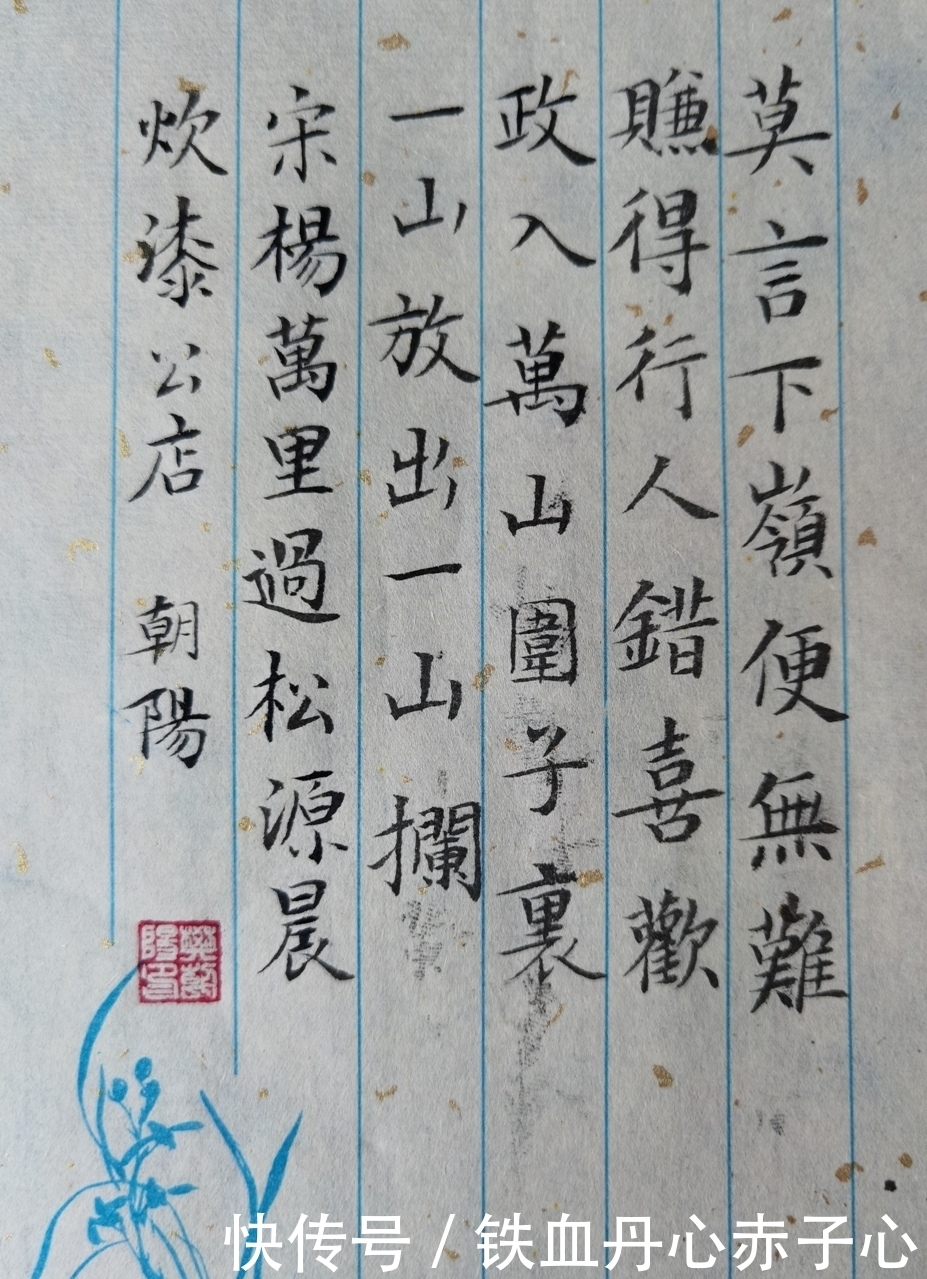 莫言下嶺便無難
賺得行人錯喜歡
政入萬山圍子裏
一山放出一山攔
宋楊萬里過松源晨
炊漆公店 朝陽
快传号 / 铁血丹心赤子心